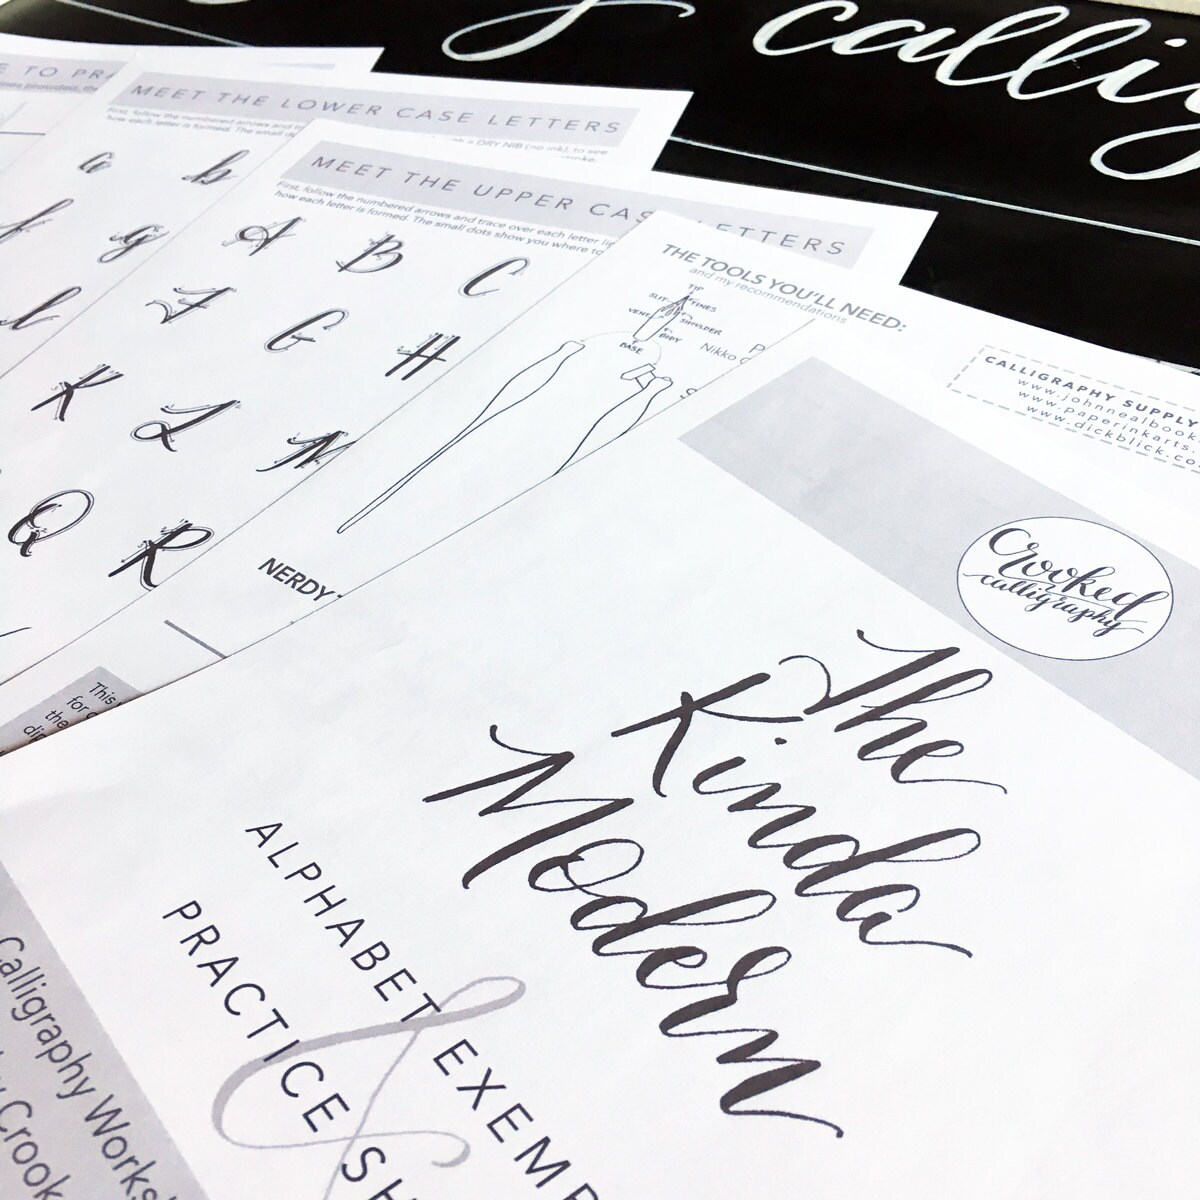 calli
E TO PRA
MEET THE LOWER CASE LETTERS
First, follow the numbered arrows and
how each letter is formed. The small
DRY NIB (no ink), to see
a b
f g
l
MEET THE UPPER CASE LETTERS
First, follow the numbered arrows and trace over each letter
how each letter is formed. The small dots show you where to
A B C
F G H
K L M
Q R
THE TOOLS YOU'LL NEED:
and my recommendations
TIP
SLIT TINES
VENT SHOULDER
BODY
BASE
Nikko
NERDY
CALLIGRAPHY SUPPLY
www.johnnealbook
www.paperinkarts.
www.dickblick.co
This
for
the
Crooked
calligraphy
The
Kinda
Modern
ALPHABET EXEMP
&
PRACTICE SH
Calligraphy Works
Crook